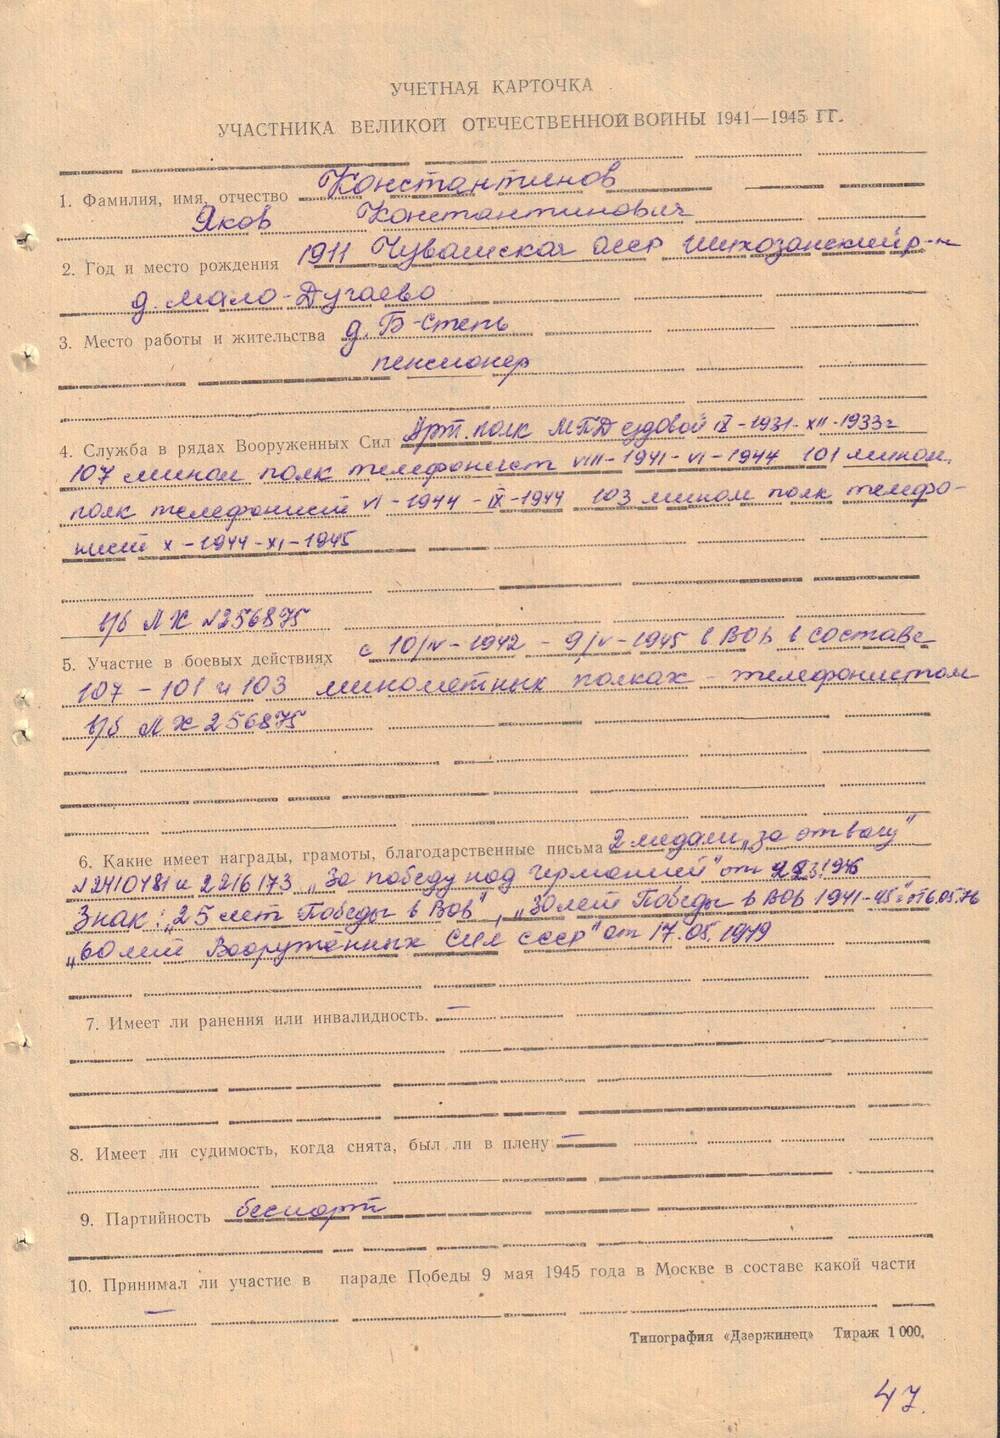 УЧЕТНАЯ КАРТОЧКА
УЧАСТНИКА ВЕЛИКОЙ ОТЕЧЕСТВЕННОЙ ВОЙНЫ 1941—1945 ГГ.
1. Фамилия, имя, отчество Константинов
Яков Константинович
2. Год и место рождения 1911 Чувашская асср Шихозанский р-н
д. Мало-Дугаево
3. Место работы и жительства д. Б-Степь
пенсионер
4. Служба в рядах Вооруженных Сил Арт. полк МПД ездовой IX-1931-XII-1933г
107 мином полк телефонист VIII-1941-VI-1944 101 мином.
полк телефонист VI-1944-IX-1944 103 мином полк телефо-
нист X-1944-XI-1945
в/б ЛХ №256875
5. Участие в боевых действиях с 10/IV-1942 - 9/V-1945 в ВОВ в составе
107-101 и 103 минометных полках - телефонистом
в/б ЛХ 256875
6. Какие имеет награды, грамоты, благодарственные письма 2 медали „за отвагу"
№2410481 и 2216173 „За победу над Германией" от 1946
Знак: „25 лет Победы в ВОВ", „30 лет Победы в ВОВ 1941-45" от 6.05.76
„60 лет Вооруженных Сил СССР" от 17.05.1979
7. Имеет ли ранения или инвалидность. —
8. Имеет ли судимость, когда снята, был ли в плену —
9. Партийность беспарт
10. Принимал ли участие в параде Победы 9 мая 1945 года в Москве в составе какой части
—
Типография «Дзержинец» Тираж 1 000.
47.